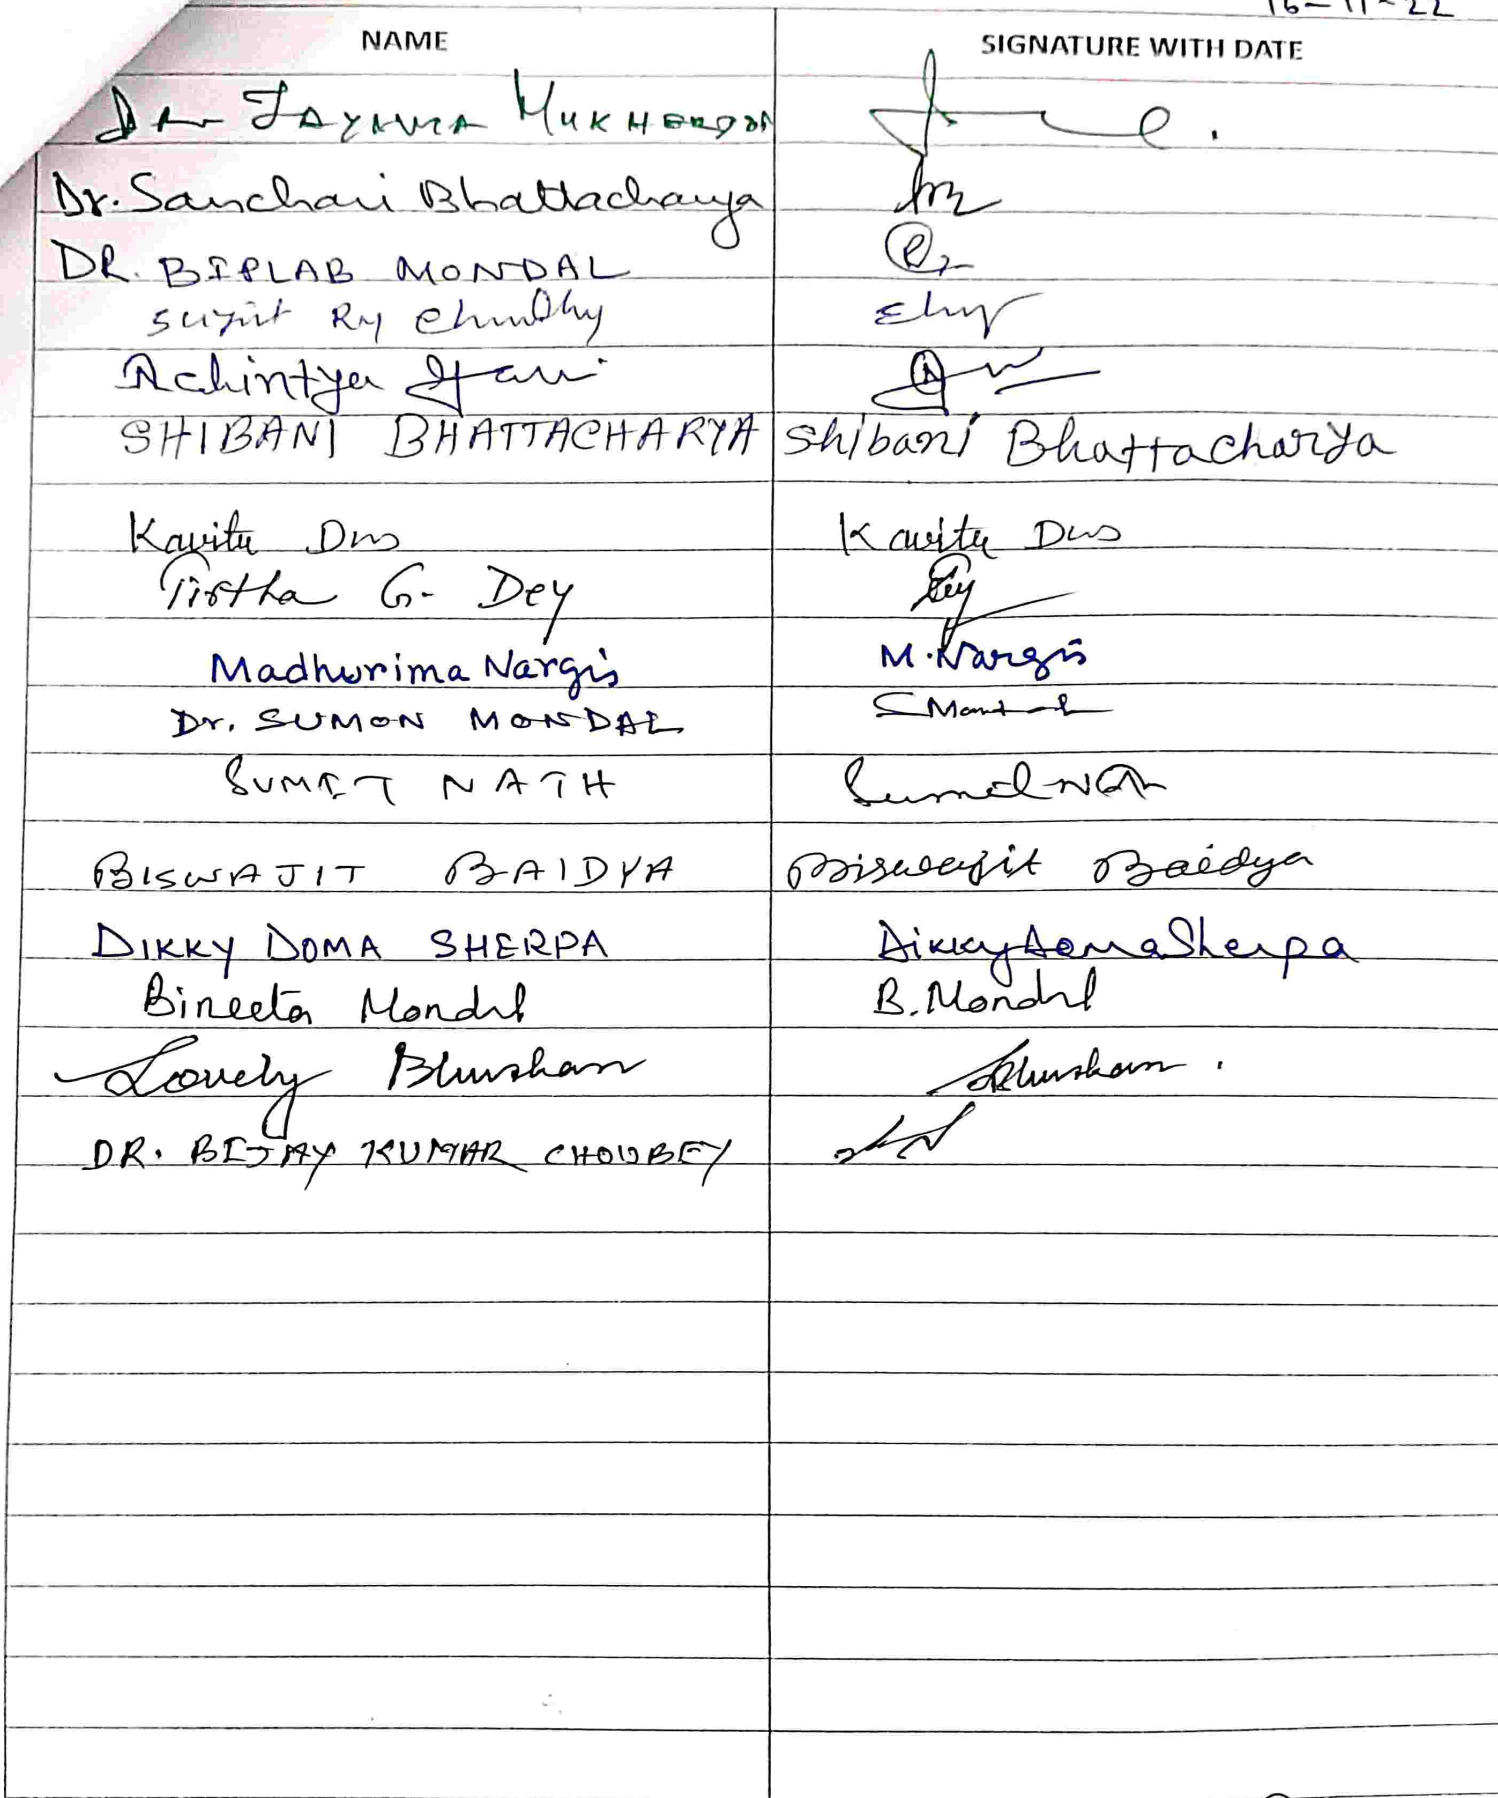 16-11-22
NAME SIGNATURE WITH DATE
MUKHERJEE
Dr. Sanchari Bhattacharya
DR. BIPLAB MONDAL
Achintya
SHIBANI BHATTACHARYA Shibani Bhattacharya
Kavita Das Kavita Das
Tirtha G. Dey
Madhurima Nargis M. Nargis
Dr. SUMON MONDAL S Mondal
SUMIT NATH
BISWAJIT BAIDYA Biswajit Baidya
DIKKY DOMA SHERPA Dikky Doma Sherpa
Bineeta Mondal B. Mondal
Lovely Bhushan Bhushan
DR. BIJAY KUMAR CHOUBEY